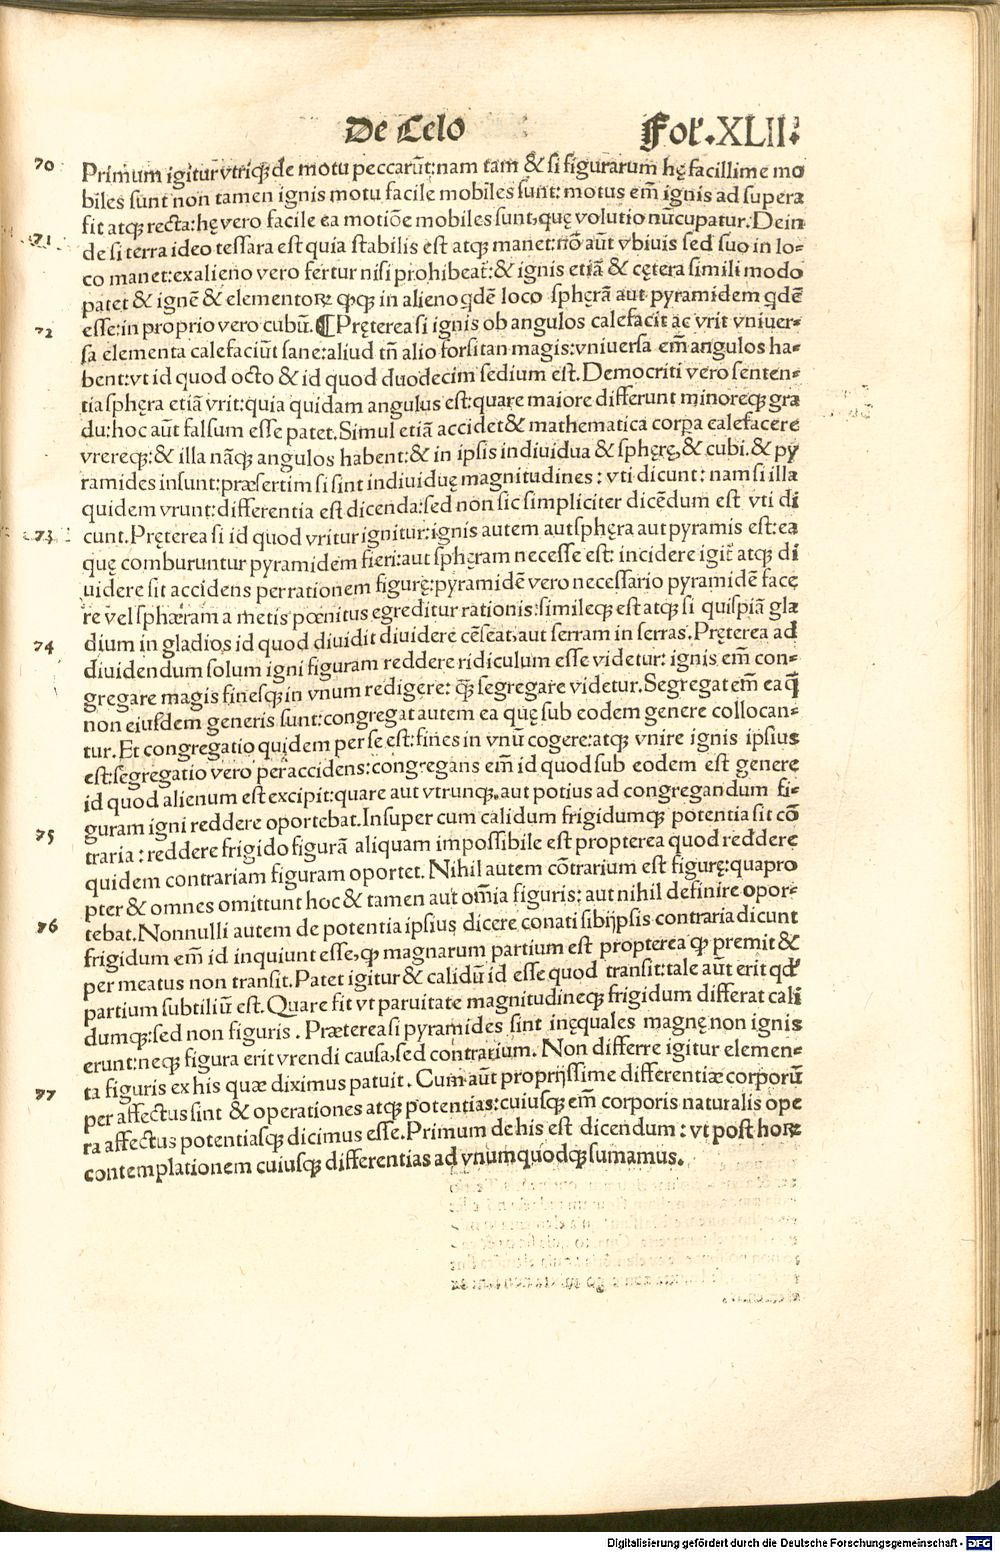 De Celo Fol'.XLII.
70 Primum igitur vtriq̃ de motu peccarũt: nam tam & si figurarum hę facillime mo
biles sunt non tamen ignis motu facile mobiles sunt: motus em̃ ignis ad supera
fit atq̃ recta: hę vero facile ea motiõe mobiles sunt, quę volutio nũcupatur. Dein
71 de si terra ideo tessara est quia stabilis est atq̃ manet: nõ aũt vbiuis sed suo in lo-
co manet: ex alieno vero fertur nisi prohibeat̃: & ignis etiã & cętera simili modo
patet & ignẽ & elementoꝝ qđq̃ in alieno qdẽ loco sphęrã aut pyramidem qdẽ
72 esse: in proprio vero cubũ. ¶ Pręterea si ignis ob angulos calefacit ac vrit vniuer-
sa elementa calefaciũt sane: aliud tñ alio forsitan magis: vniuersa em̃ angulos ha-
bent: vt id quod octo & id quod duodecim sedium est. Democriti vero senten-
tia sphęra etiã vrit: quia quidam angulus est: quare maiore differunt minoreq̃ gra
du: hoc aũt falsum esse patet. Simul etiã accidet & mathematica corꝑa calefacere
vrereq̃: & illa nãq̃ angulos habent: & in ipsis indiuidua & sphęrę, & cubi. & py
ramides insunt: præsertim si sint indiuiduę magnitudines: vti dicunt: nam si illa
quidem vrunt: differentia est dicenda: sed non sic simpliciter dicẽdum est vti di
73 cunt. Pręterea si id quod vritur ignitur: ignis autem aut sphęra aut pyramis est: ea
quę comburuntur pyramidem fieri: aut sphęram necesse est: incidere igit̃ atq̃ di
uidere sit accidens per rationem figurę: pyramidẽ vero necessario pyramidẽ facę
re vel sphæram a metis pœnitus egreditur rationis: simileq̃ est atq̃ si quispiã gla
74 dium in gladios id quod diuidit diuidere cẽseat, aut serram in serras. Pręterea ad
diuidendum solum igni figuram reddere ridiculum esse videtur: ignis em̃ con-
gregare magis finesq̃ in vnum redigere: q̃ segregare videtur. Segregat em̃ ea q̃
non eiusdem generis sunt: congregat autem ea quę sub eodem genere collocan-
tur. Et congregatio quidem per se est: fines in vnũ cogere: atq̃ vnire ignis ipsius
est: segregatio vero per accidens: congregans em̃ id quod sub eodem est genere
id quod alienum est excipit: quare aut vtrunq̃, aut potius ad congregandum fi-
75 guram igni reddere oportebat. Insuper cum calidum frigidumq̃ potentia sit cõ
traria: reddere frigido figurã aliquam impossibile est propterea quod reddere
quidem contrariam figuram oportet. Nihil autem cõtrarium est figurę: quapro
pter & omnes omittunt hoc & tamen aut om̃ia figuris: aut nihil definire opor-
76 tebat. Nonnulli autem de potentia ipsius dicere conati sibijpsis contraria dicunt
frigidum em̃ id inquiunt esse, qɔ̨ magnarum partium est propterea qɔ̨ premit &
per meatus non transit. Patet igitur & calidũ id esse quod transit: tale aũt erit qđ
partium subtiliũ est. Quare fit vt paruitate magnitudineq̃ frigidum differat cali
dumq̃: sed non figuris. Præterea si pyramides sint inęquales magnę non ignis
erunt: neq̃ figura erit vrendi causa, sed contrarium. Non differre igitur elemen-
77 ta figuris ex his quæ diximus patuit. Cum aũt proprijssime differentiæ corporũ
per affectus sint & operationes atq̃ potentias: cuiusq̃ em̃ corporis naturalis ope
ra affectus potentiasq̃ dicimus esse. Primum de his est dicendum: vt post hoꝝ
contemplationem cuiusq̃ differentias ad vnumquodq̃ sumamus.
Digitalisierung gefördert durch die Deutsche Forschungsgemeinschaft - DFG